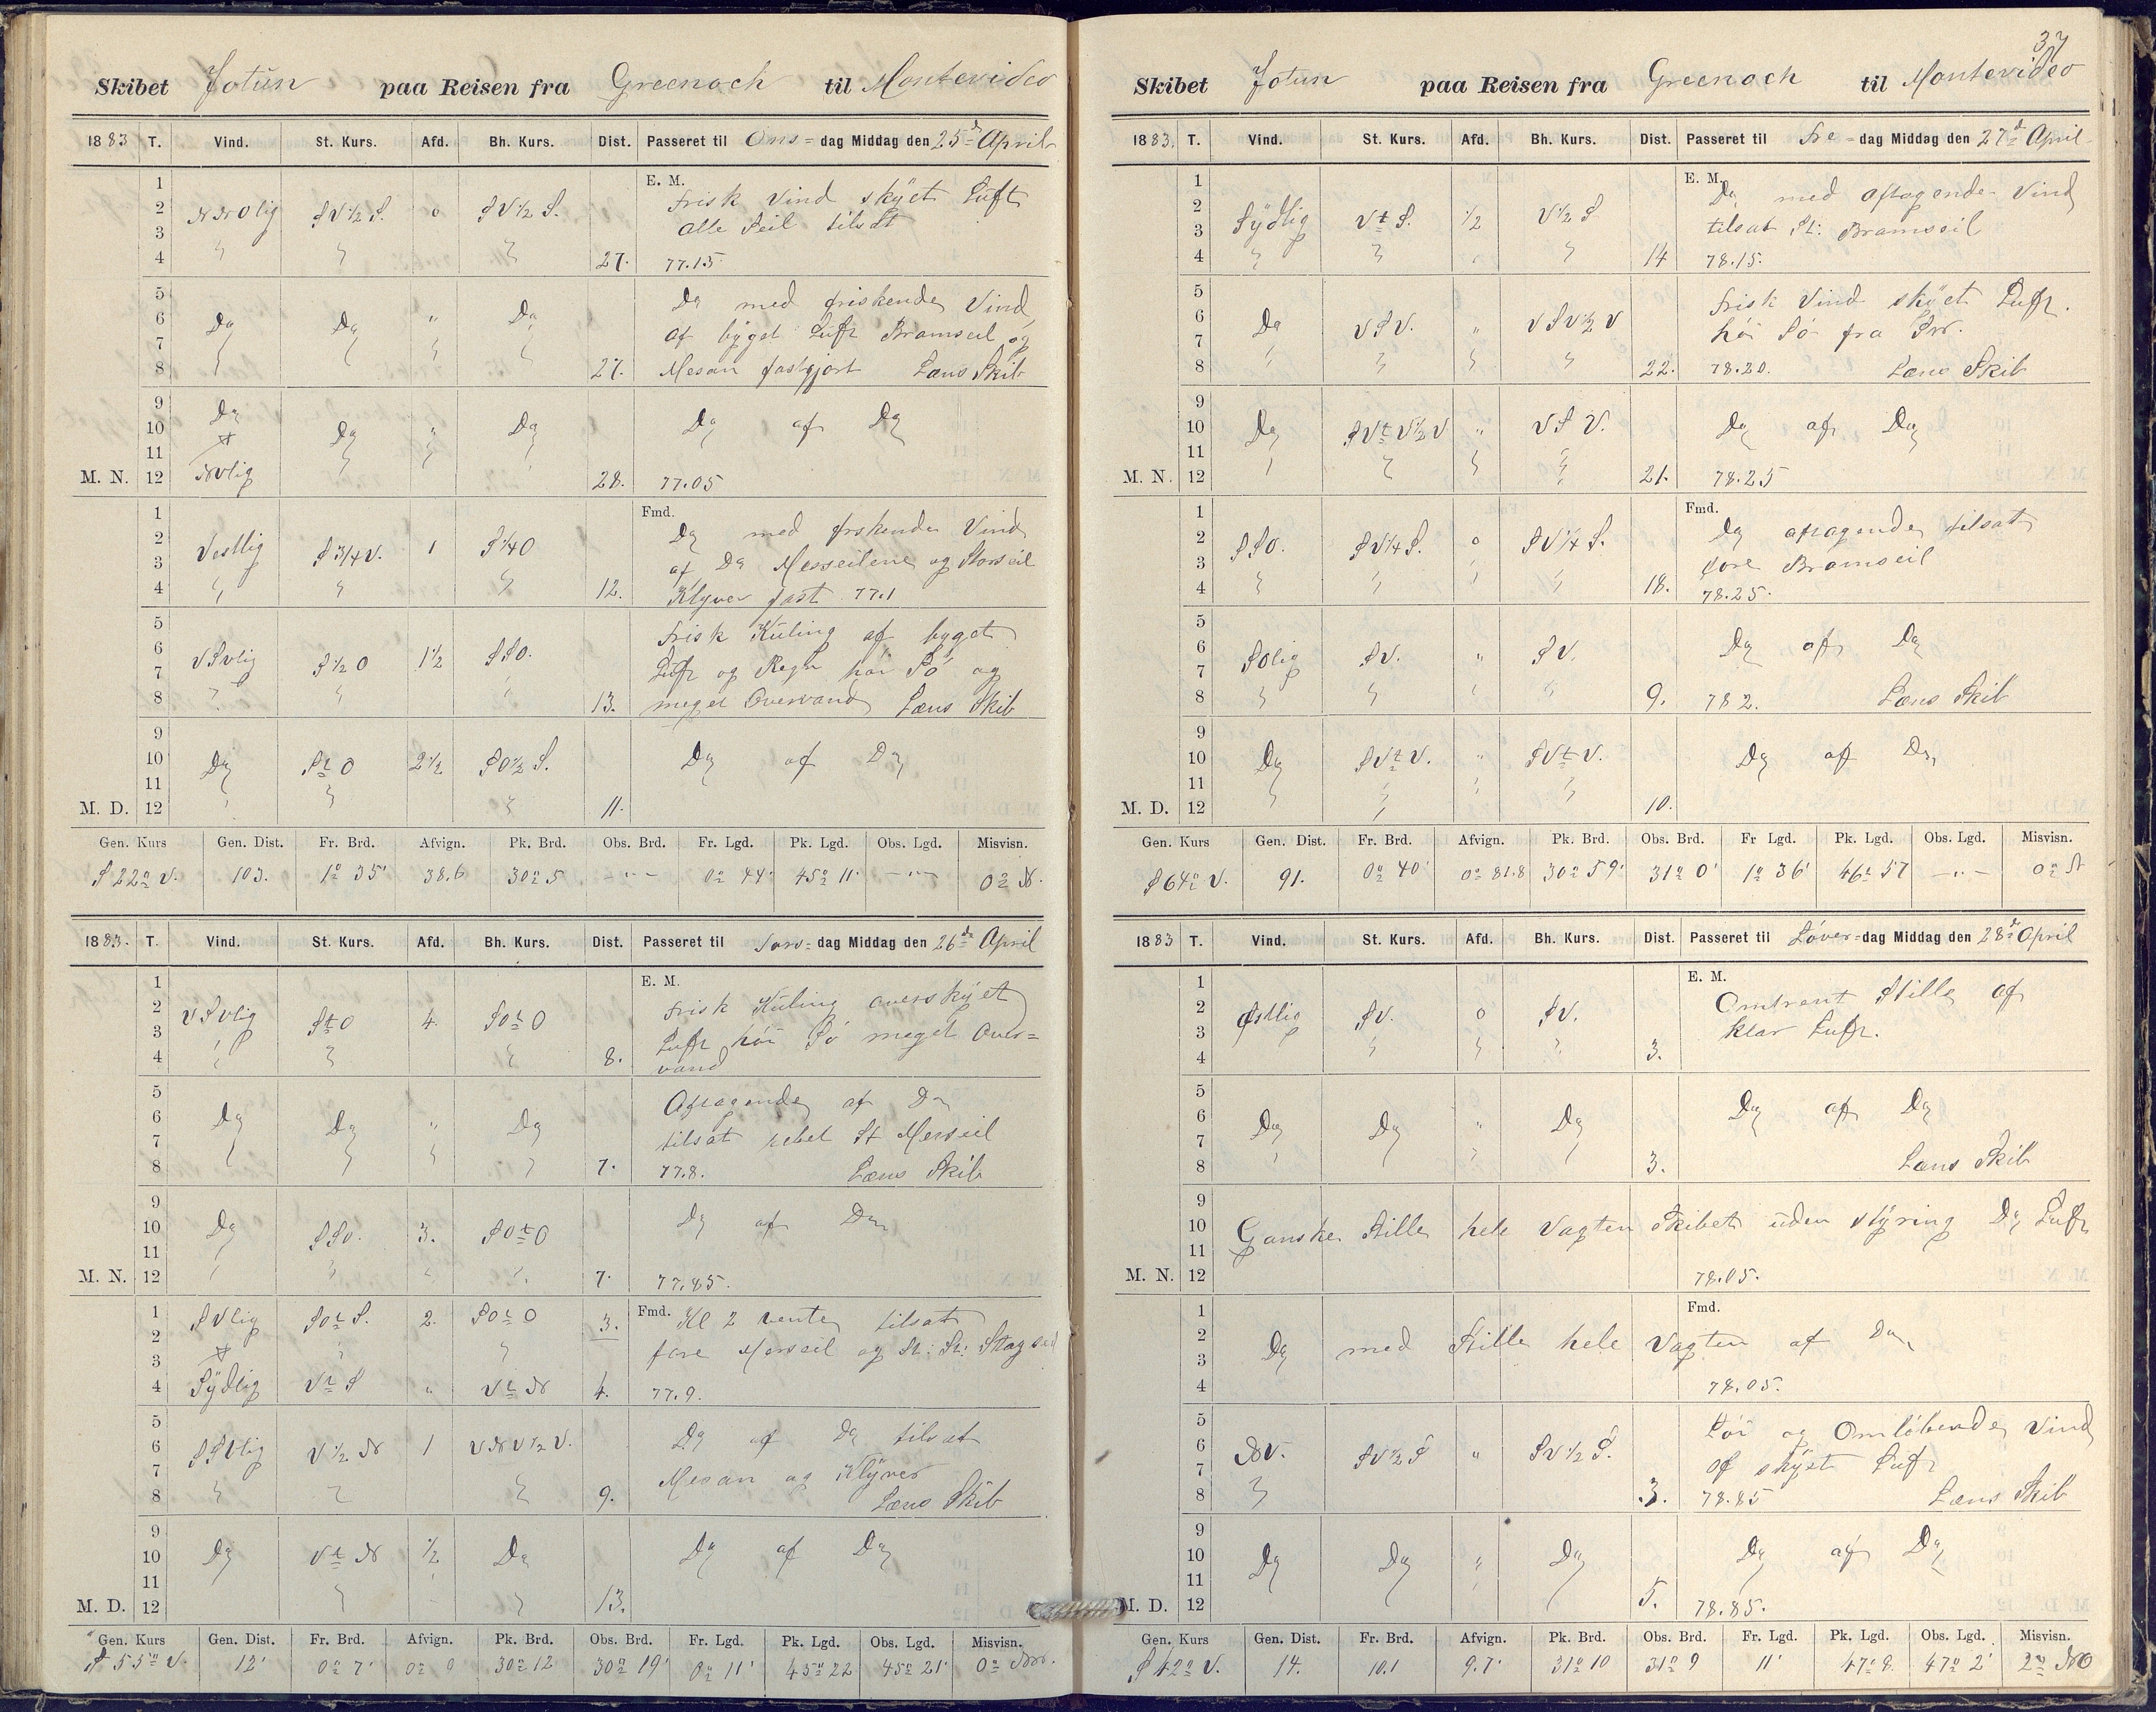 Skibet Jotun paa Reisen fra Greenock til Montevideo
1883 T. Vind. St. Kurs. Afd. Bh. Kurs. Dist. Passeret til Ons=dag Middag den 25de April
1 E. M. Frisk Vind skÿet Luft
2 NNOlig SV½S. 0 SV½S. alle Seil tilsat
3
4 27. 77.15
5 Do med friskende Vind
6 Do Do " Do af bÿget Luft Bramseil og
7
8 27. Mesan fastgjort Læns Skib
9 Do
10 Do " Do Do af Do
11
M. N. 12 NVlig 28. 77.05
1 Fmd. Do med friskende Vind
2 Vestlig S¾V. 1 S¼O af Do Merseilene og Storseil
3
4 12. Klÿver fast 77.1
5 Frisk Kuling af byget
6 VSVlig S½O 1½ SSO. Luft og Regn høi Sö og
7
8 13. meget Overvand Læns Skib
9
10 Do StO 2½ SO½S. Do af Do
11
M. D. 12 11.
Gen. Kurs Gen. Dist. Fr. Brd. Afvign. Pk. Brd. Obs. Brd. Fr. Lgd. Pk. Lgd. Obs. Lgd. Misvisn.
S 22° V. 103. 1° 35' 38.6 30° 5 -"- 0° 44' 45° 11' -"- 0° N.
1883. T. Vind. St. Kurs. Afd. Bh. Kurs. Dist. Passeret til Tors=dag Middag den 26de April
1 E. M. Frisk Kuling overskÿet
2 VSVlig StO 4. SOtO Luft høi Sö meget Over=
3
4 8. vand
5 Aftagende af Do
6 Do Do " Do tilsat rebet St Merseil
7
8 7. 77.8. Læns Skib
9
10 Do SSO. 3. SOtO Do af Do
11
M. N. 12 7. 77.85.
1 SVlig SOtS. 2. SOtO 3. Fmd. Kl 2 vente tilsat
2 fore Merseil og St: St: Stagseil
3
4 Sÿdlig VtS " VtN 4. 77.9.
5 Do af Do tilsat
6 SSVlig V½N 1 VNV½V. Mesan og Klÿver
7
8 9. Læns Skib
9
10 Do VtN ½ Do Do af Do
11
M. D. 12 13.
Gen. Kurs Gen. Dist. Fr. Brd. Afvign. Pk. Brd. Obs. Brd. Fr. Lgd. Pk. Lgd. Obs. Lgd. Misvisn.
S 55° V. 12' 0° 7' 0° 9 30° 12 30° 19' 0° 11' 45° 22 45° 21' 0°
37
Skibet Jotun paa Reisen fra Greenock til Montevideo
1883. T. Vind. St. Kurs. Afd. Bh. Kurs. Dist. Passeret til Fre=dag Middag den 27de April
1 E. M. Do med aftagende Vind
2 Sÿdlig VtS. ½ V½S tilsat St: Bramseil
3
4 14 78.15.
5 Frisk Vind skÿet Luft.
6 Do VSV. " VSV½V høi Sö fra
7
8 22. 78.20. Læns Skib
9
10 Do SVtV½V " VSV. Do af Do
11
M. N. 12 21. 78.25
1 Fmd. Do aftagende tilsat
2 SSO. SV¼S. 0 SV¼S. fore Bramseil
3
4 18. 78.25.
5
6 SOlig SV. " SV. Do af Do
7
8 9. 78 2. Læns Skib
9
10 Do SVtV. " SVtV. Do af Do
11
M. D. 12 10.
Gen. Kurs Gen. Dist. Fr. Brd. Afvign. Pk. Brd. Obs. Brd. Fr Lgd. Pk. Lgd. Obs. Lgd. Misvisn.
S 64° V. 91. 0° 40' 0° 81.8 30° 59' 31° 0' 1° 36' 46° 57 -"- 0°
1883 T. Vind. St. Kurs. Afd. Bh. Kurs. Dist. Passeret til Löver=dag Middag den 28de April
1 E. M. Omtrent Stille af
2 Østlig SV. 0 SV. klar Luft.
3
4 3.
5
6 Do Do " Do Do af Do
7
8 3. Læns Skib
9
10 Ganske Stille hele Vagten Skibet uden stÿring Do Luft
11
M. N. 12 78.05.
1 Fmd.
2 Do med Stille hele Vagten af Do
3
4 78.05.
5 Löi og Omløbende Vind
6 NV. SV½S " SV½S. af skÿet Luft
7
8 3. 78.85 Læns Skib
9
10 Do Do " Do Do af Do
11
M. D. 12 5. 78.85.
Gen. Kurs Gen. Dist. Fr. Brd. Afvign. Pk. Brd. Obs. Brd. Fr. Lgd. Pk. Lgd. Obs. Lgd. Misvisn.
S 42° V. 14. 10.1 9.7' 31° 10 31° 9 11' 47° 8. 47° 2' 2° NO